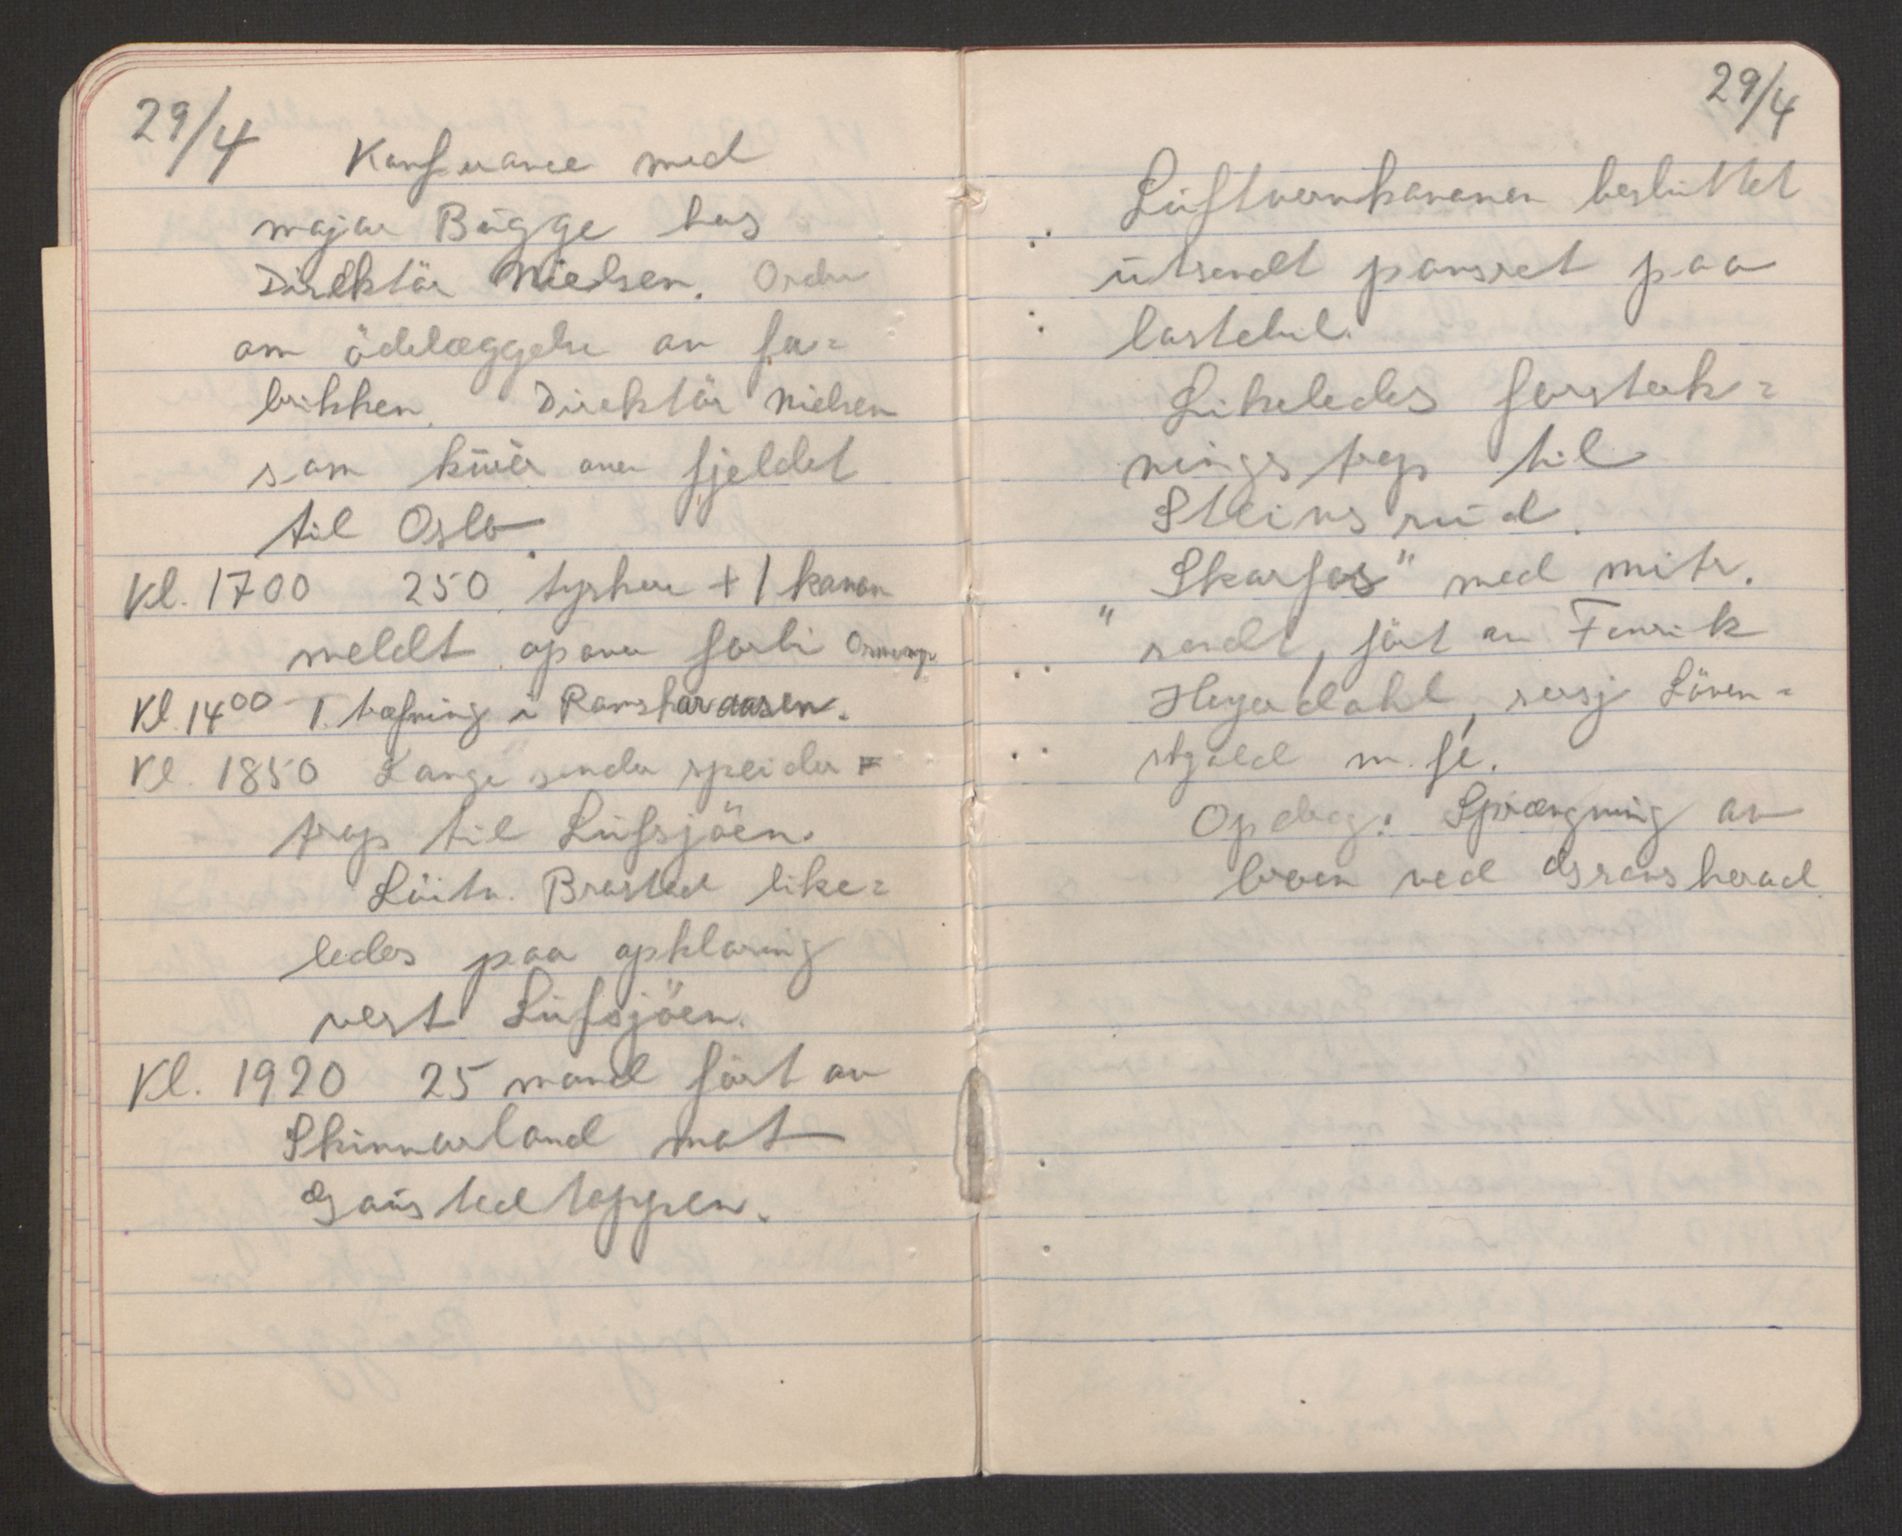 29/4
Konferance med
major Bugge hos
Direktör Nielsen. Ordre
om ödelæggelse av fa=
brikken. Direktör Nielsen
som kurér over fjeldet
til Oslo.
Kl. 1700 250 tyskere + 1 kanon
meldt opover forbi
Kl. 1400 I. træfning i
Kl. 1850 Lange sender speider=
trop til Lufsjöen.
Löitn. Brosted like=
ledes paa opklaring
vest Lufsjöen.
Kl. 1920 25 mand fört av
Skinnarland mot
Gaustadtoppen.
29/4
Luftvernkanonen besluttet
utsendt pansret paa
lastebil.
Likeledes forsterk=
ningstrop til
Steinsrud.
"Skarfos" med mitr.
sendt, fört av Fenrik
Heyerdahl, sersj Löven=
skjold m. fl.
Opdrag: Sprængning av
broen ved Gransherad.